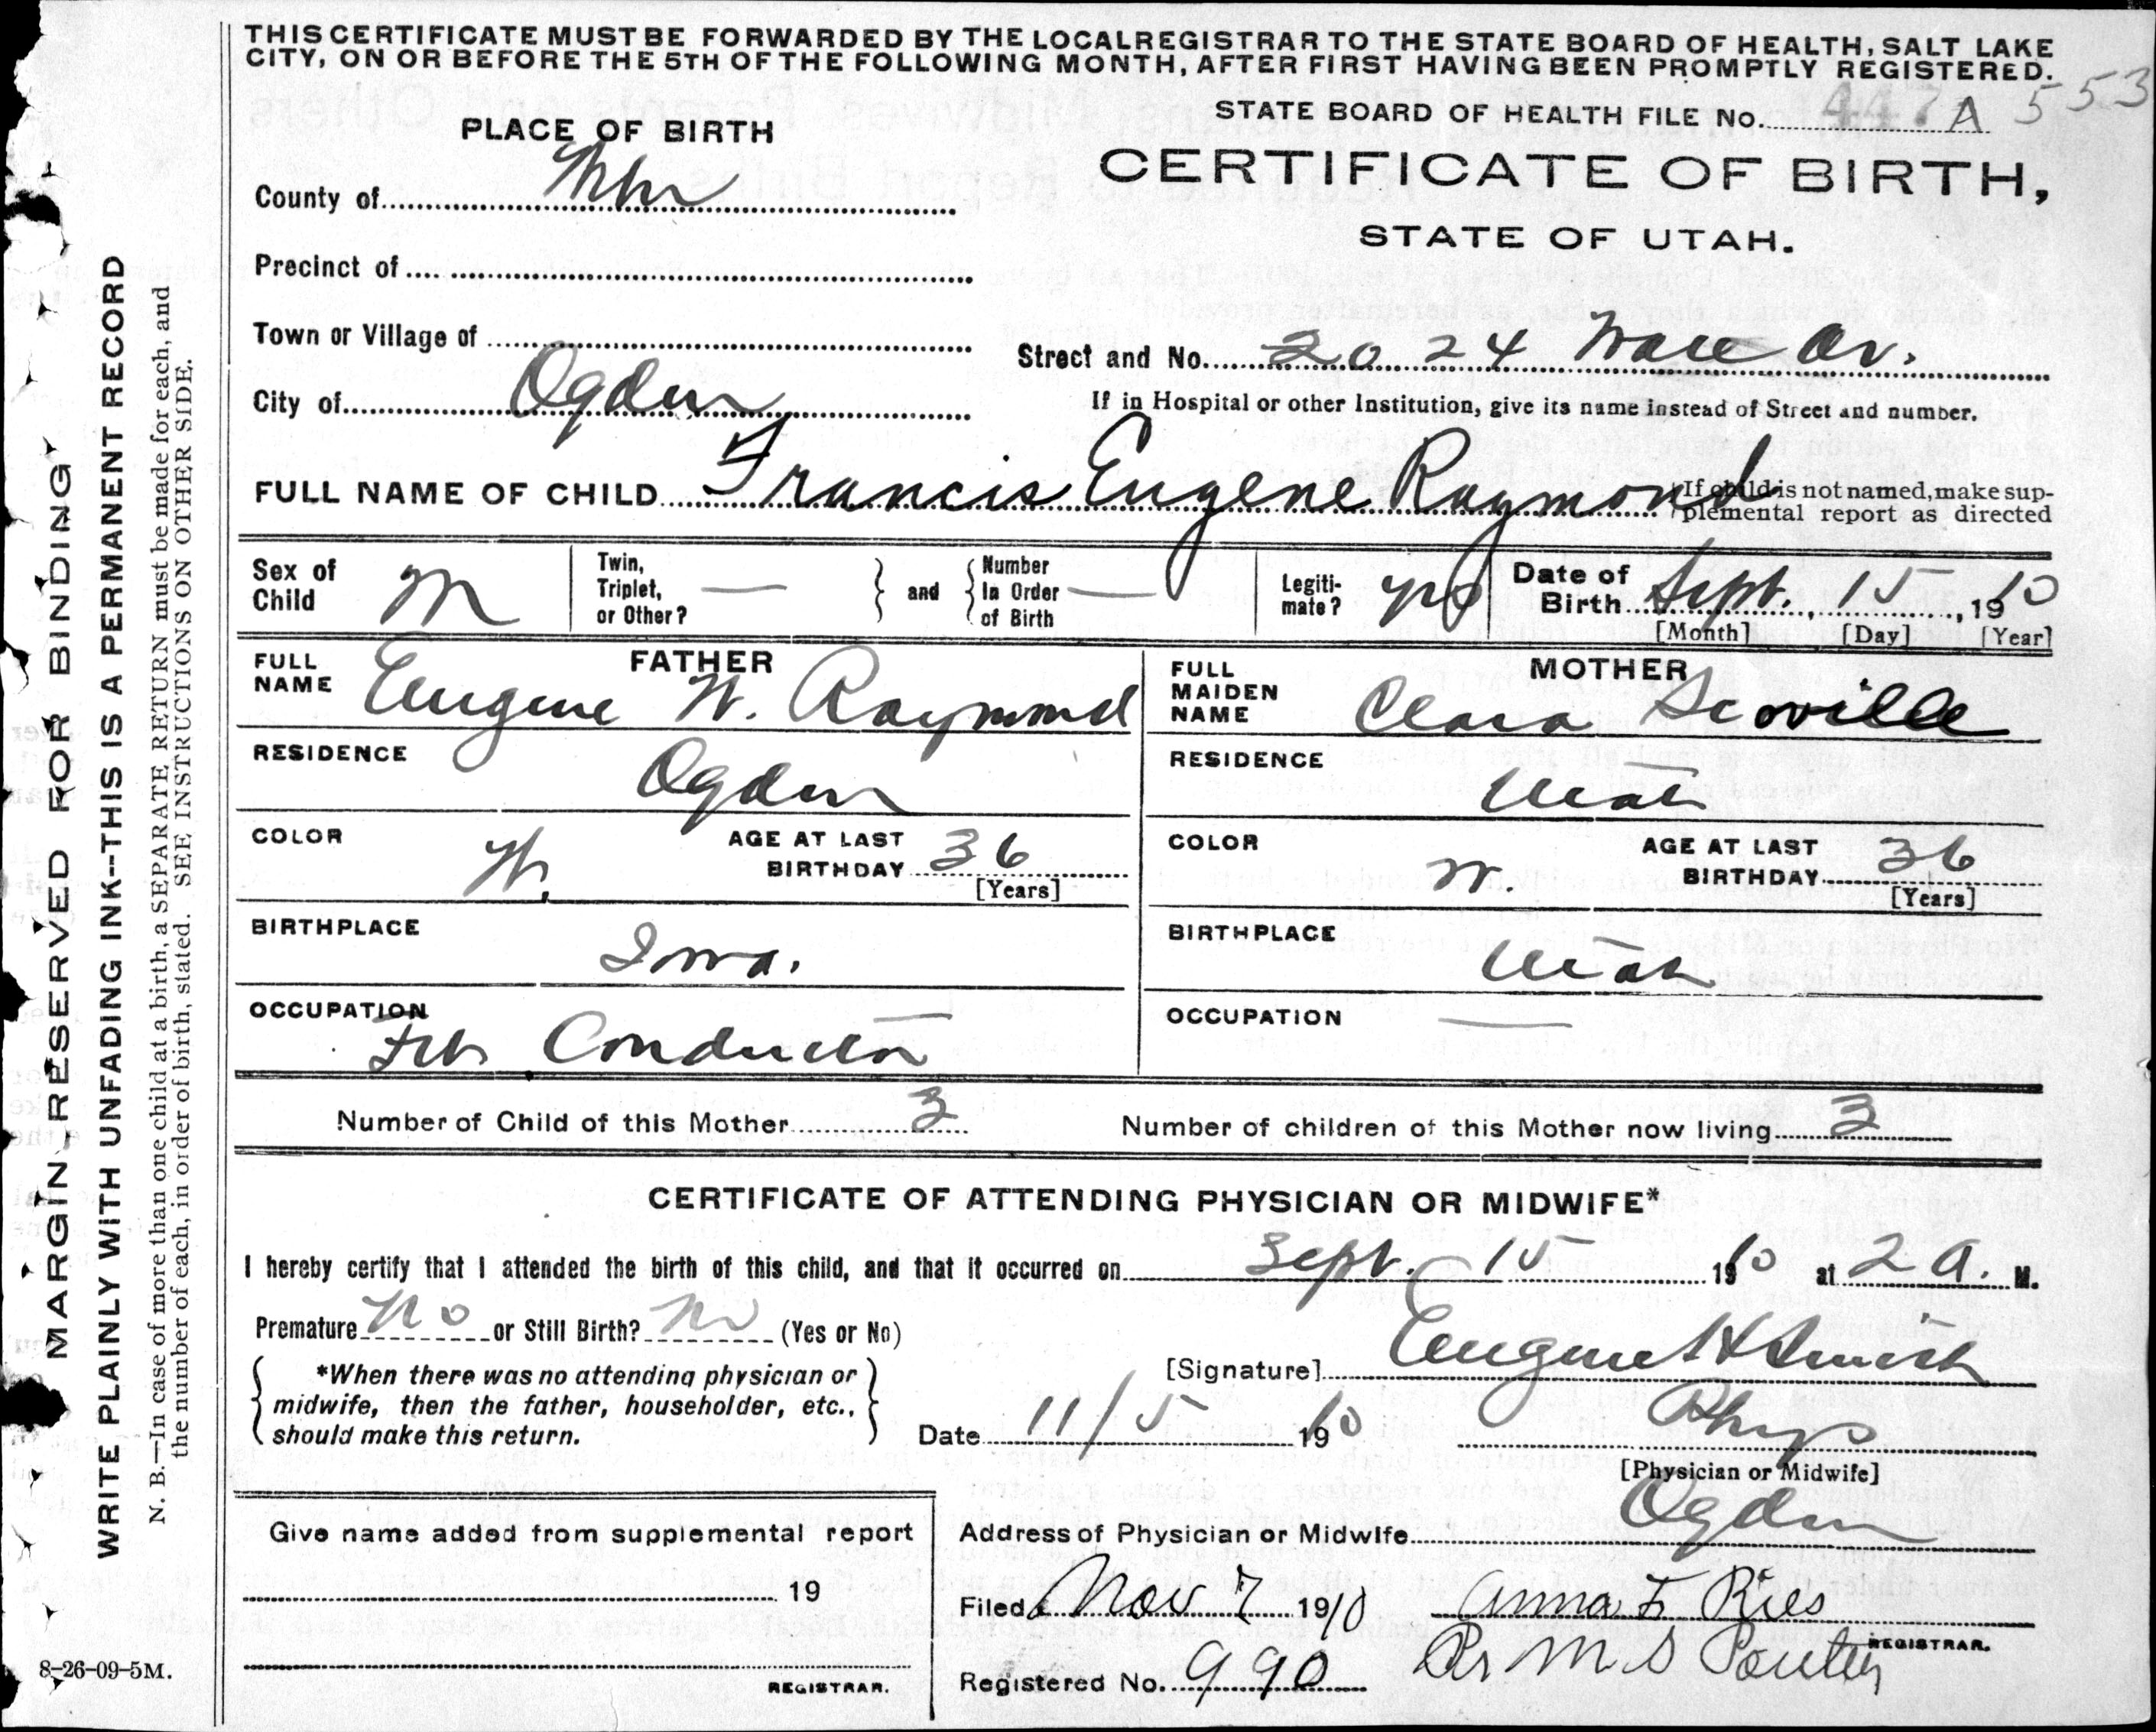 THIS CERTIFICATE MUST BE FORWARDED BY THE LOCAL REGISTRAR TO THE STATE BOARD OF HEALTH, SALT LAKE
CITY, ON OR BEFORE THE 5TH OF THE FOLLOWING MONTH, AFTER FIRST HAVING BEEN PROMPTLY REGISTERED.
STATE BOARD OF HEALTH FILE No. 447 A 553
PLACE OF BIRTH
CERTIFICATE OF BIRTH,
STATE OF UTAH.
County of
Precinct of
Town or Village of
Street and No. 2024 Av.
City of Ogden
If in Hospital or other Institution, give its name instead of Street and number.
FULL NAME OF CHILD Francis Eugene Raymond
If child is not named, make sup-
plemental report as directed
Sex of Child M
Twin, Triplet, or Other? —
and
Number In Order of Birth —
Legiti-mate? yes
Date of Birth Sept. 15, 1910
[Month] [Day] [Year]
FATHER
FULL NAME Eugene W. Raymond
RESIDENCE Ogden
COLOR W.
AGE AT LAST BIRTHDAY 36
[Years]
BIRTHPLACE Iowa.
OCCUPATION Conductor
MOTHER
FULL MAIDEN NAME Clara Scoville
RESIDENCE Utah
COLOR W.
AGE AT LAST BIRTHDAY 36
[Years]
BIRTHPLACE Utah
OCCUPATION —
Number of Child of this Mother 3
Number of children of this Mother now living 3
CERTIFICATE OF ATTENDING PHYSICIAN OR MIDWIFE*
I hereby certify that I attended the birth of this child, and that it occurred on Sept. 15 1910 at 2 A. M.
Premature No or Still Birth? No (Yes or No)
*When there was no attending physician or
midwife, then the father, householder, etc.,
should make this return.
[Signature] Eugene H Smith
Date 11/5 1910
Phys
[Physician or Midwife]
Address of Physician or Midwife Ogden
Give name added from supplemental report
19
REGISTRAR.
Filed Nov 7 1910 Anna F Ries
REGISTRAR.
Registered No. 990 Pr M S
8-26-09-5M.
MARGIN RESERVED FOR BINDING
WRITE PLAINLY WITH UNFADING INK--THIS IS A PERMANENT RECORD
N. B.—In case of more than one child at a birth, a SEPARATE RETURN must be made for each, and
the number of each, in order of birth, stated. SEE INSTRUCTIONS ON OTHER SIDE.